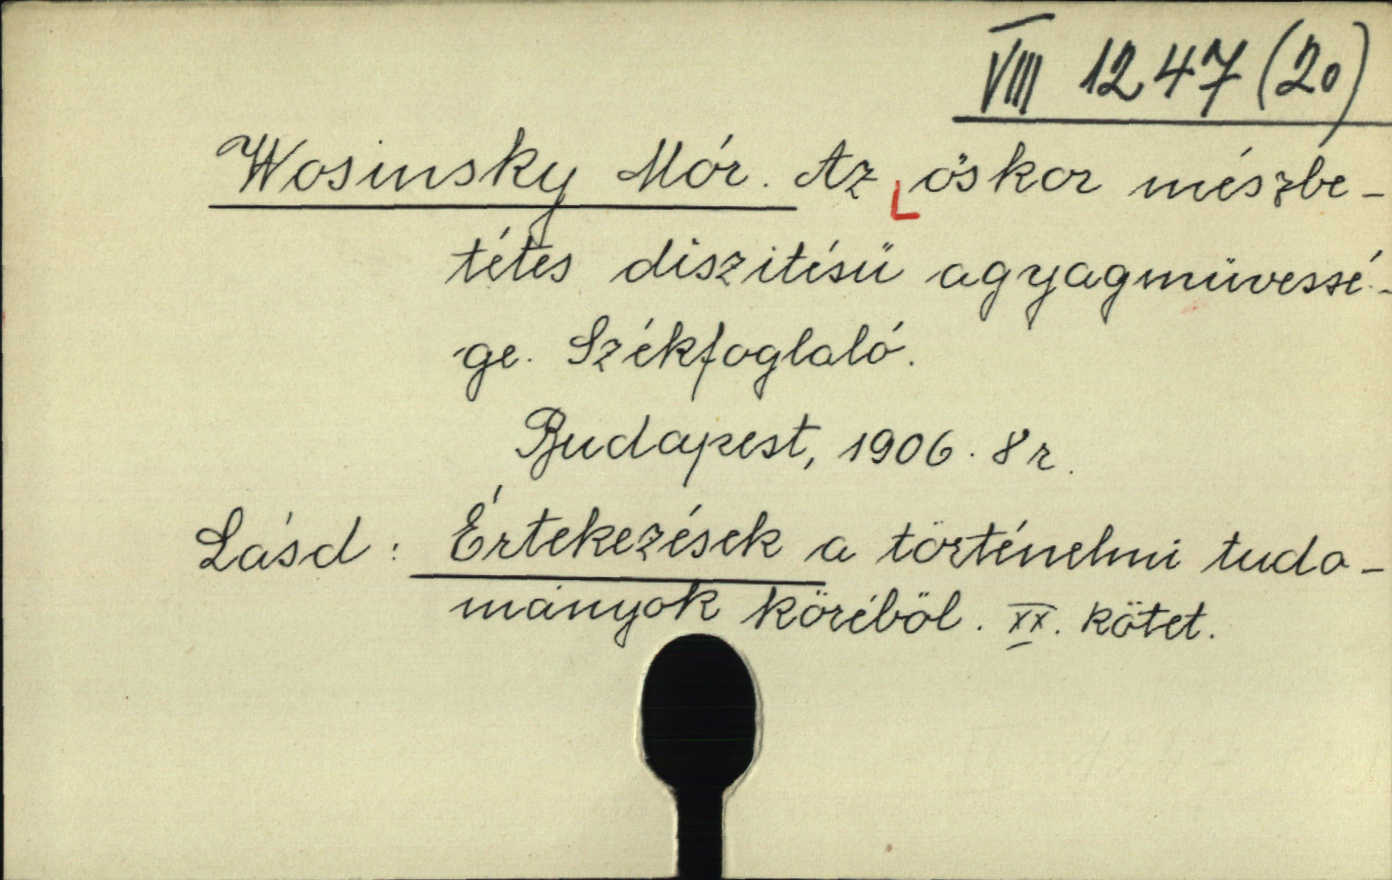 VIII 1247 (20)
Wosinsky Mór. Az őskor mészbe-
tétes diszitésü agyagmüvessé-
ge. Székfoglaló.
Budapest, 1906. 8 r.
Lásd: Értekezések a történelmi tudo-
mányok köréböl. XX. kötet.